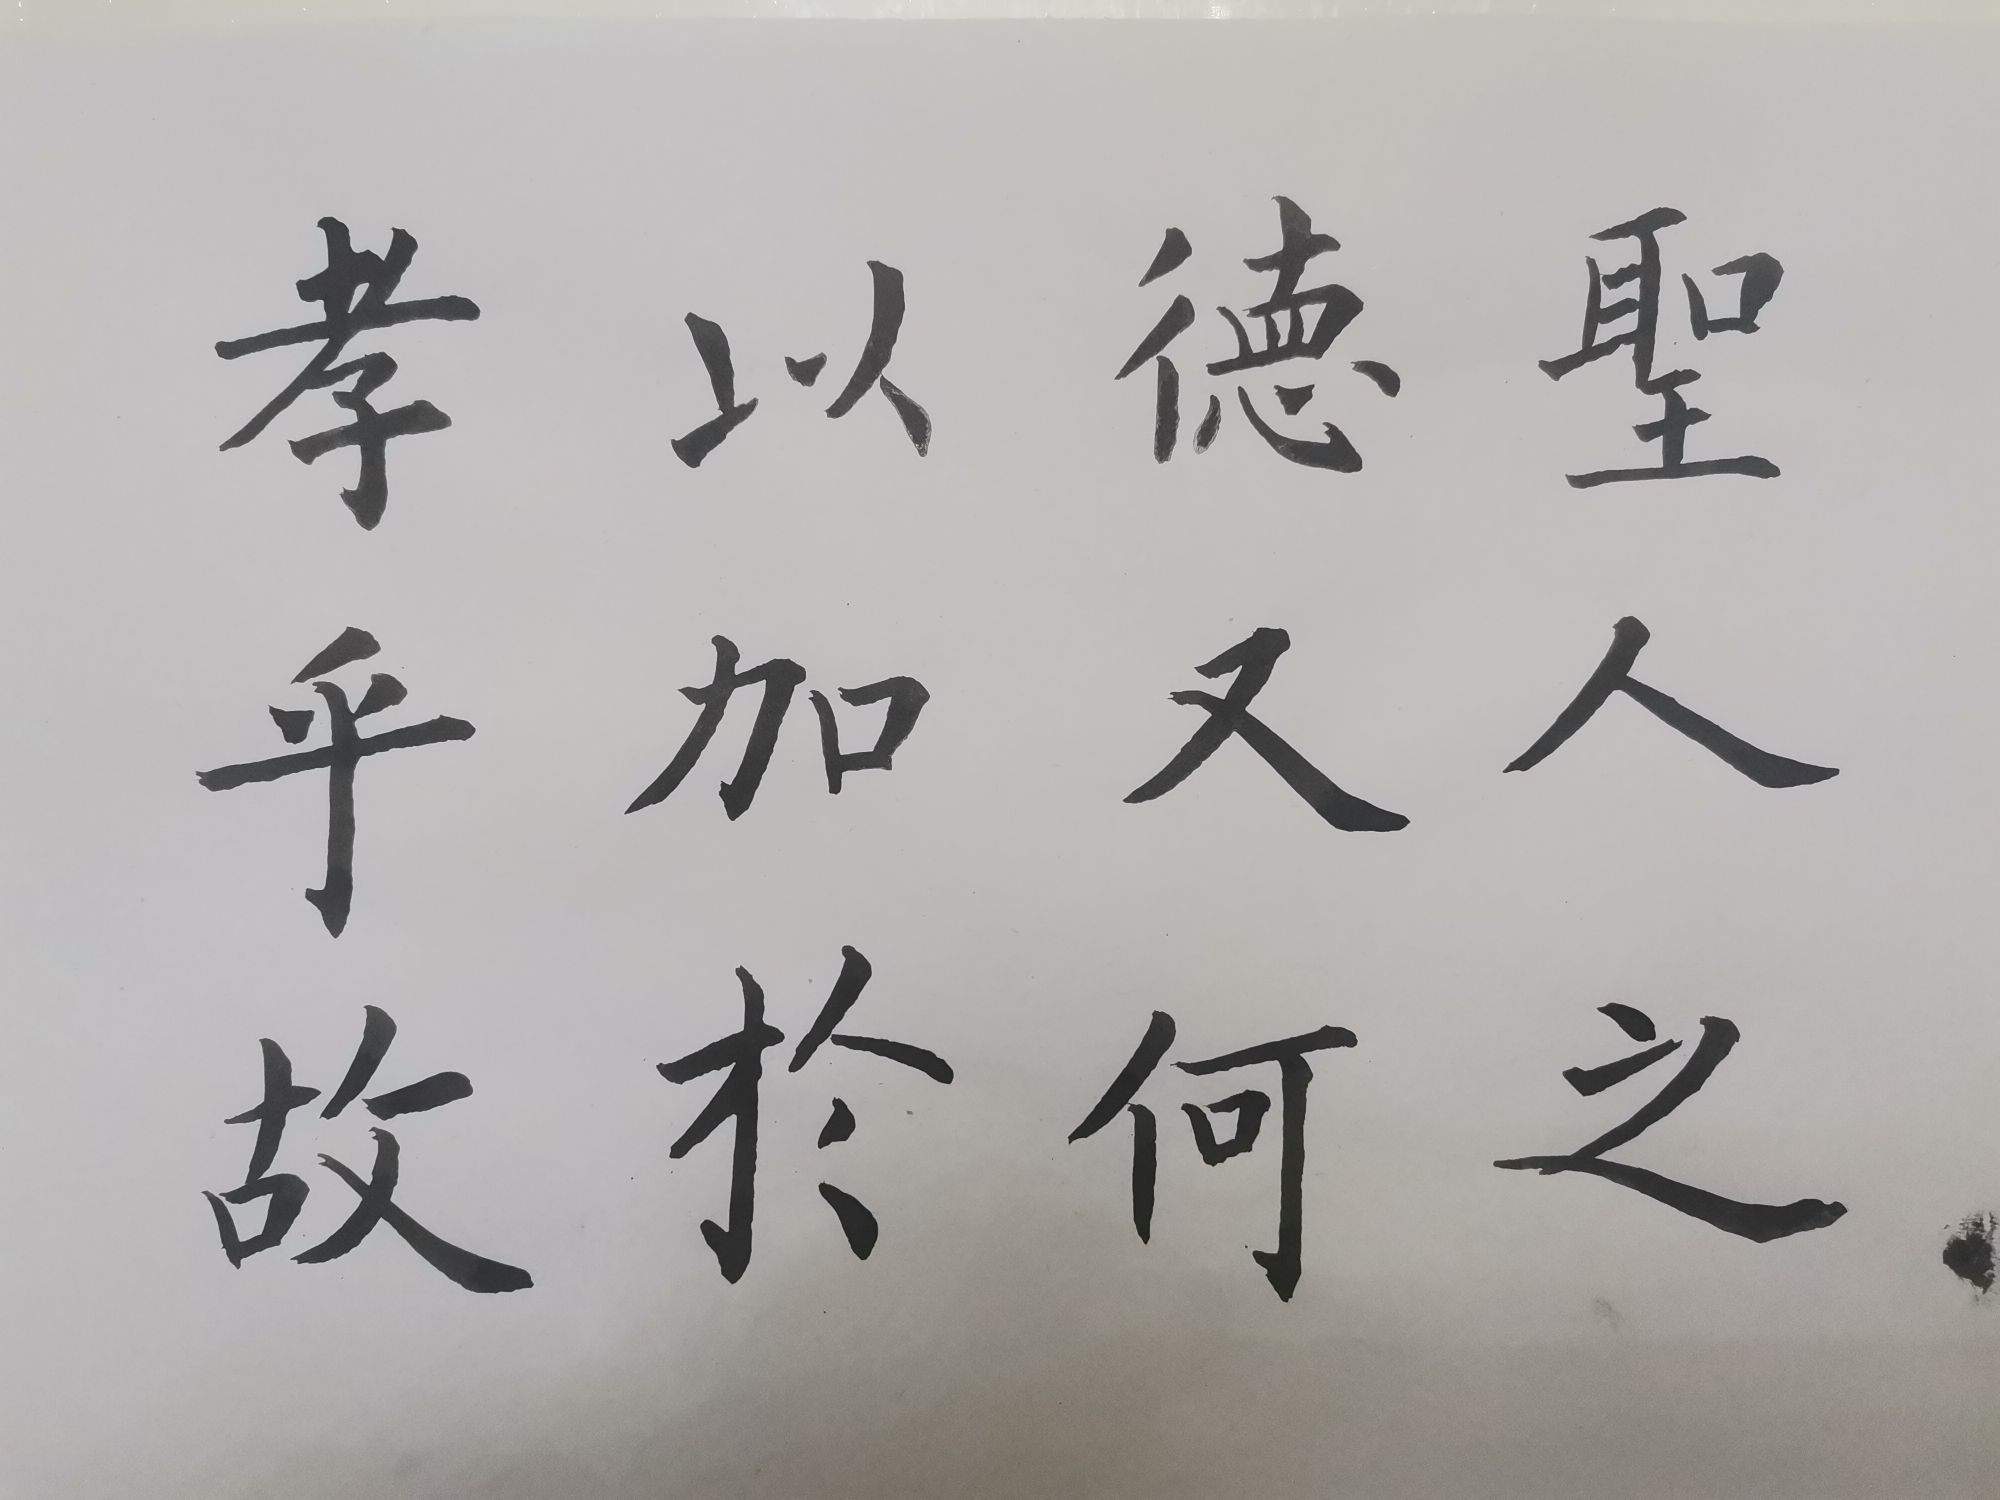 聖人之
德又何
以加於
孝乎故